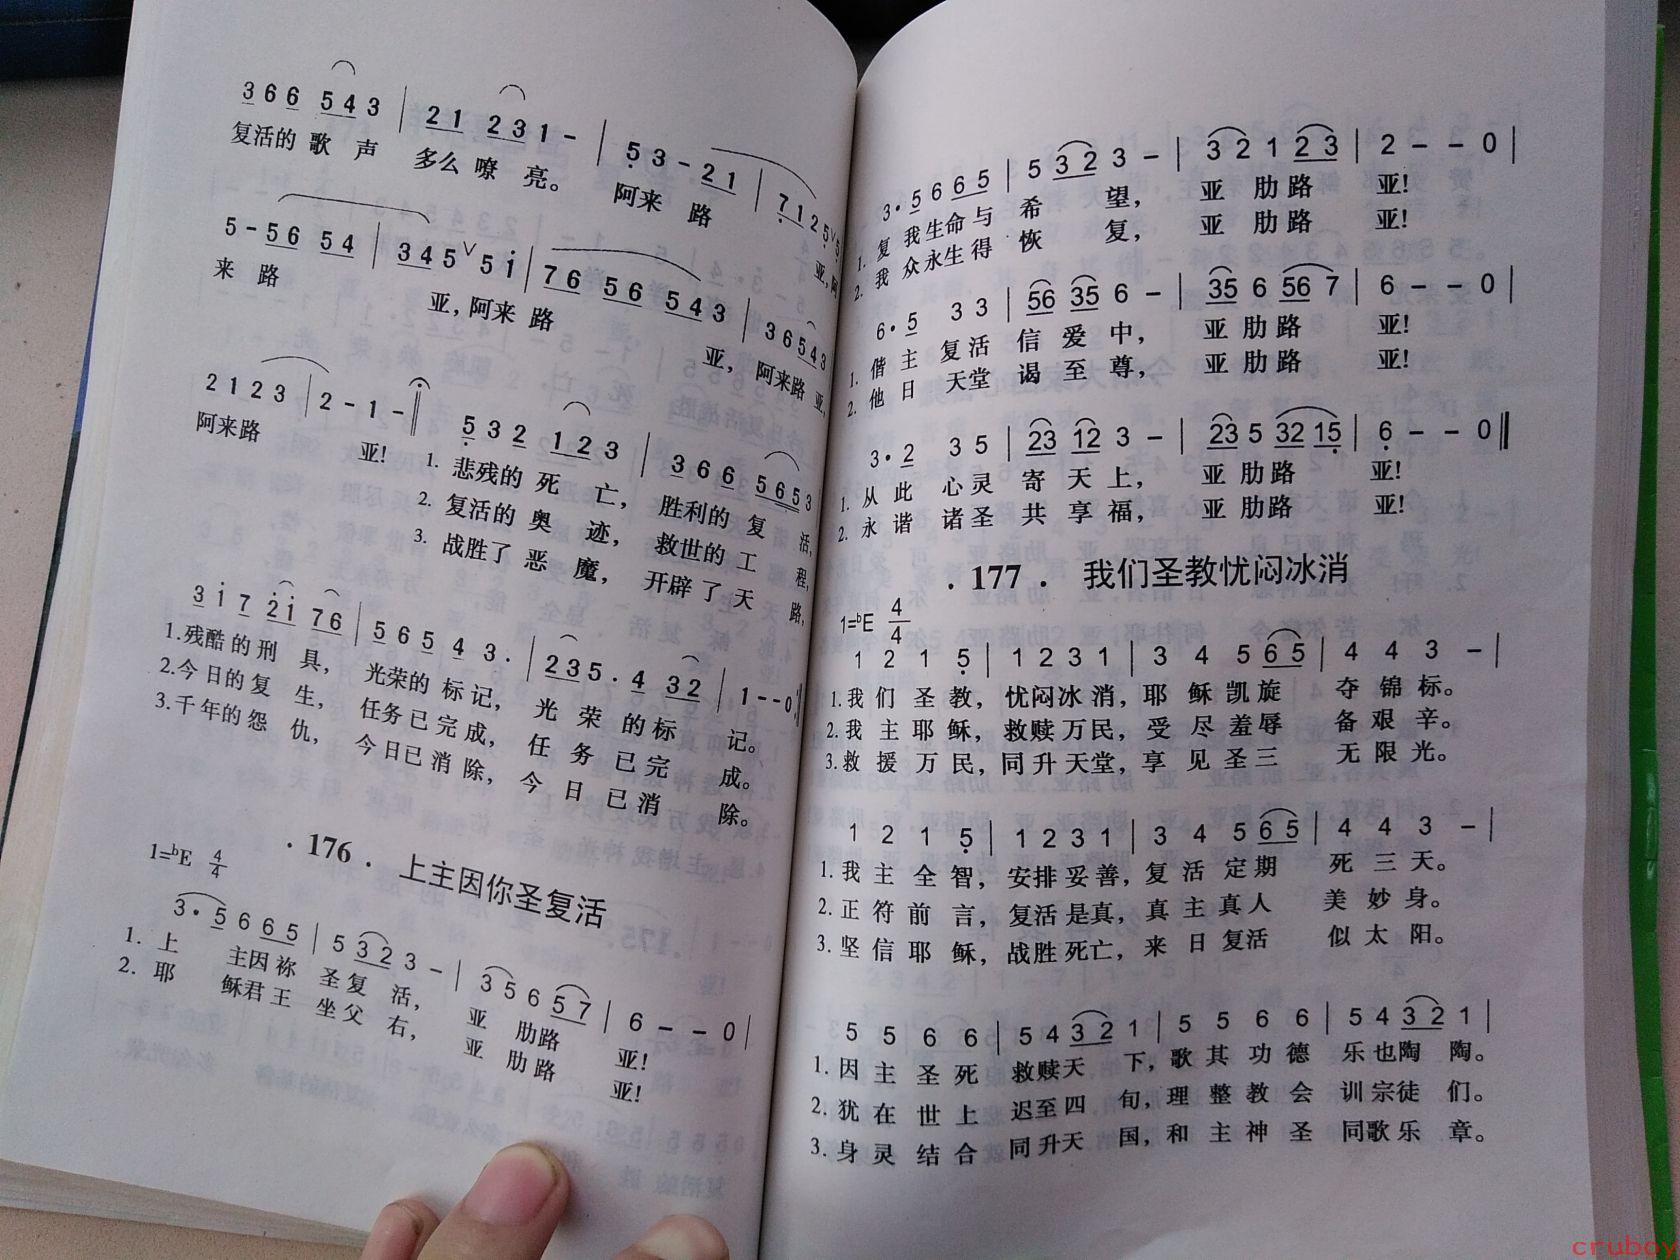 3 6 6 5 4 3 | 2 1 2 3 1 - | 5 3 - 2 1 | 7 1 2 5 ∨ 5
复活的 歌 声 多么 嘹 亮。 阿来 路 亚,阿
5 - 5 6 5 4 | 3 4 5 ∨ 5 i | 7 6 5 6 5 4 3 | 3 6 5 4 3
来 路 亚,阿来 路 亚, 阿来路 亚,
2 1 2 3 | 2 - 1 - ‖ 5 3 2 1 2 3 | 3 6 6 5 6 5 3
阿来路 亚! 1. 悲残的 死 亡, 胜利的 复 活,
2. 复活的 奥 迹, 救世的 工 程,
3. 战胜了 恶 魔, 开辟 了 天 路,
3 i 7 2 i 7 6 | 5 6 5 4 3 · | 2 3 5 · 4 3 2 | 1 - - 0 :‖
1.残酷 的 刑 具, 光荣的 标 记, 光 荣 的 标 记。
2.今 日的 复 生, 任务 已 完 成, 任 务 已 完 成。
3.千 年的 怨 仇, 今 日已 消 除, 今 日 已 消 除。
· 176 · 上主因你圣复活
1=ᵇE 4/4
3 · 5 6 6 5 | 5 3 2 3 - | 3 5 6 5 7 | 6 - - 0 |
1. 上 主因 祢 圣 复 活, 亚 肋路 亚!
2. 耶 稣君 王 坐 父 右, 亚 肋 路 亚!
3 · 5 6 6 5 | 5 3 2 3 - | 3 2 1 2 3 | 2 - - 0 |
1. 复 我 生命 与 希 望, 亚 肋 路 亚!
2. 我 众 永生 得 恢 复, 亚 肋 路 亚!
6 · 5 3 3 | 5 6 3 5 6 - | 3 5 6 5 6 7 | 6 - - 0 |
1. 偕 主 复活 信 爱 中, 亚 肋 路 亚!
2. 他 日 天堂 谒 至 尊, 亚 肋 路 亚!
3 · 2 3 5 | 2 3 1 2 3 - | 2 3 5 3 2 1 5 | 6 - - 0 ‖
1. 从 此 心 灵 寄 天 上, 亚 肋路 亚!
2. 永 谐 诸 圣 共 享 福, 亚 肋路 亚!
· 177 · 我们圣教忧闷冰消
1=ᵇE 4/4
1 2 1 5 | 1 2 3 1 | 3 4 5 6 5 | 4 4 3 - |
1.我 们 圣 教,忧闷冰 消,耶 稣 凯旋 夺 锦 标。
2.我 主 耶 稣,救赎 万 民,受 尽 羞 辱 备 艰 辛。
3.救 援 万 民,同 升 天 堂,享 见 圣 三 无 限 光。
1 2 1 5 | 1 2 3 1 | 3 4 5 6 5 | 4 4 3 - |
1.我 主 全 智, 安排 妥 善,复 活 定 期 死 三 天。
2.正 符 前 言, 复活 是 真,真 主 真 人 美 妙 身。
3.坚 信 耶 稣, 战胜 死 亡,来 日 复 活 似 太 阳。
5 5 6 6 | 5 4 3 2 1 | 5 5 6 6 | 5 4 3 2 1 |
1.因 主 圣 死 救赎 天 下,歌 其 功 德 乐 也陶 陶。
2.犹 在 世 上 迟至 四 旬,理 整 教 会 训 宗徒 们。
3.身 灵 结 合 同 升 天 国,和 主 神 圣 同歌 乐 章。
cruboy